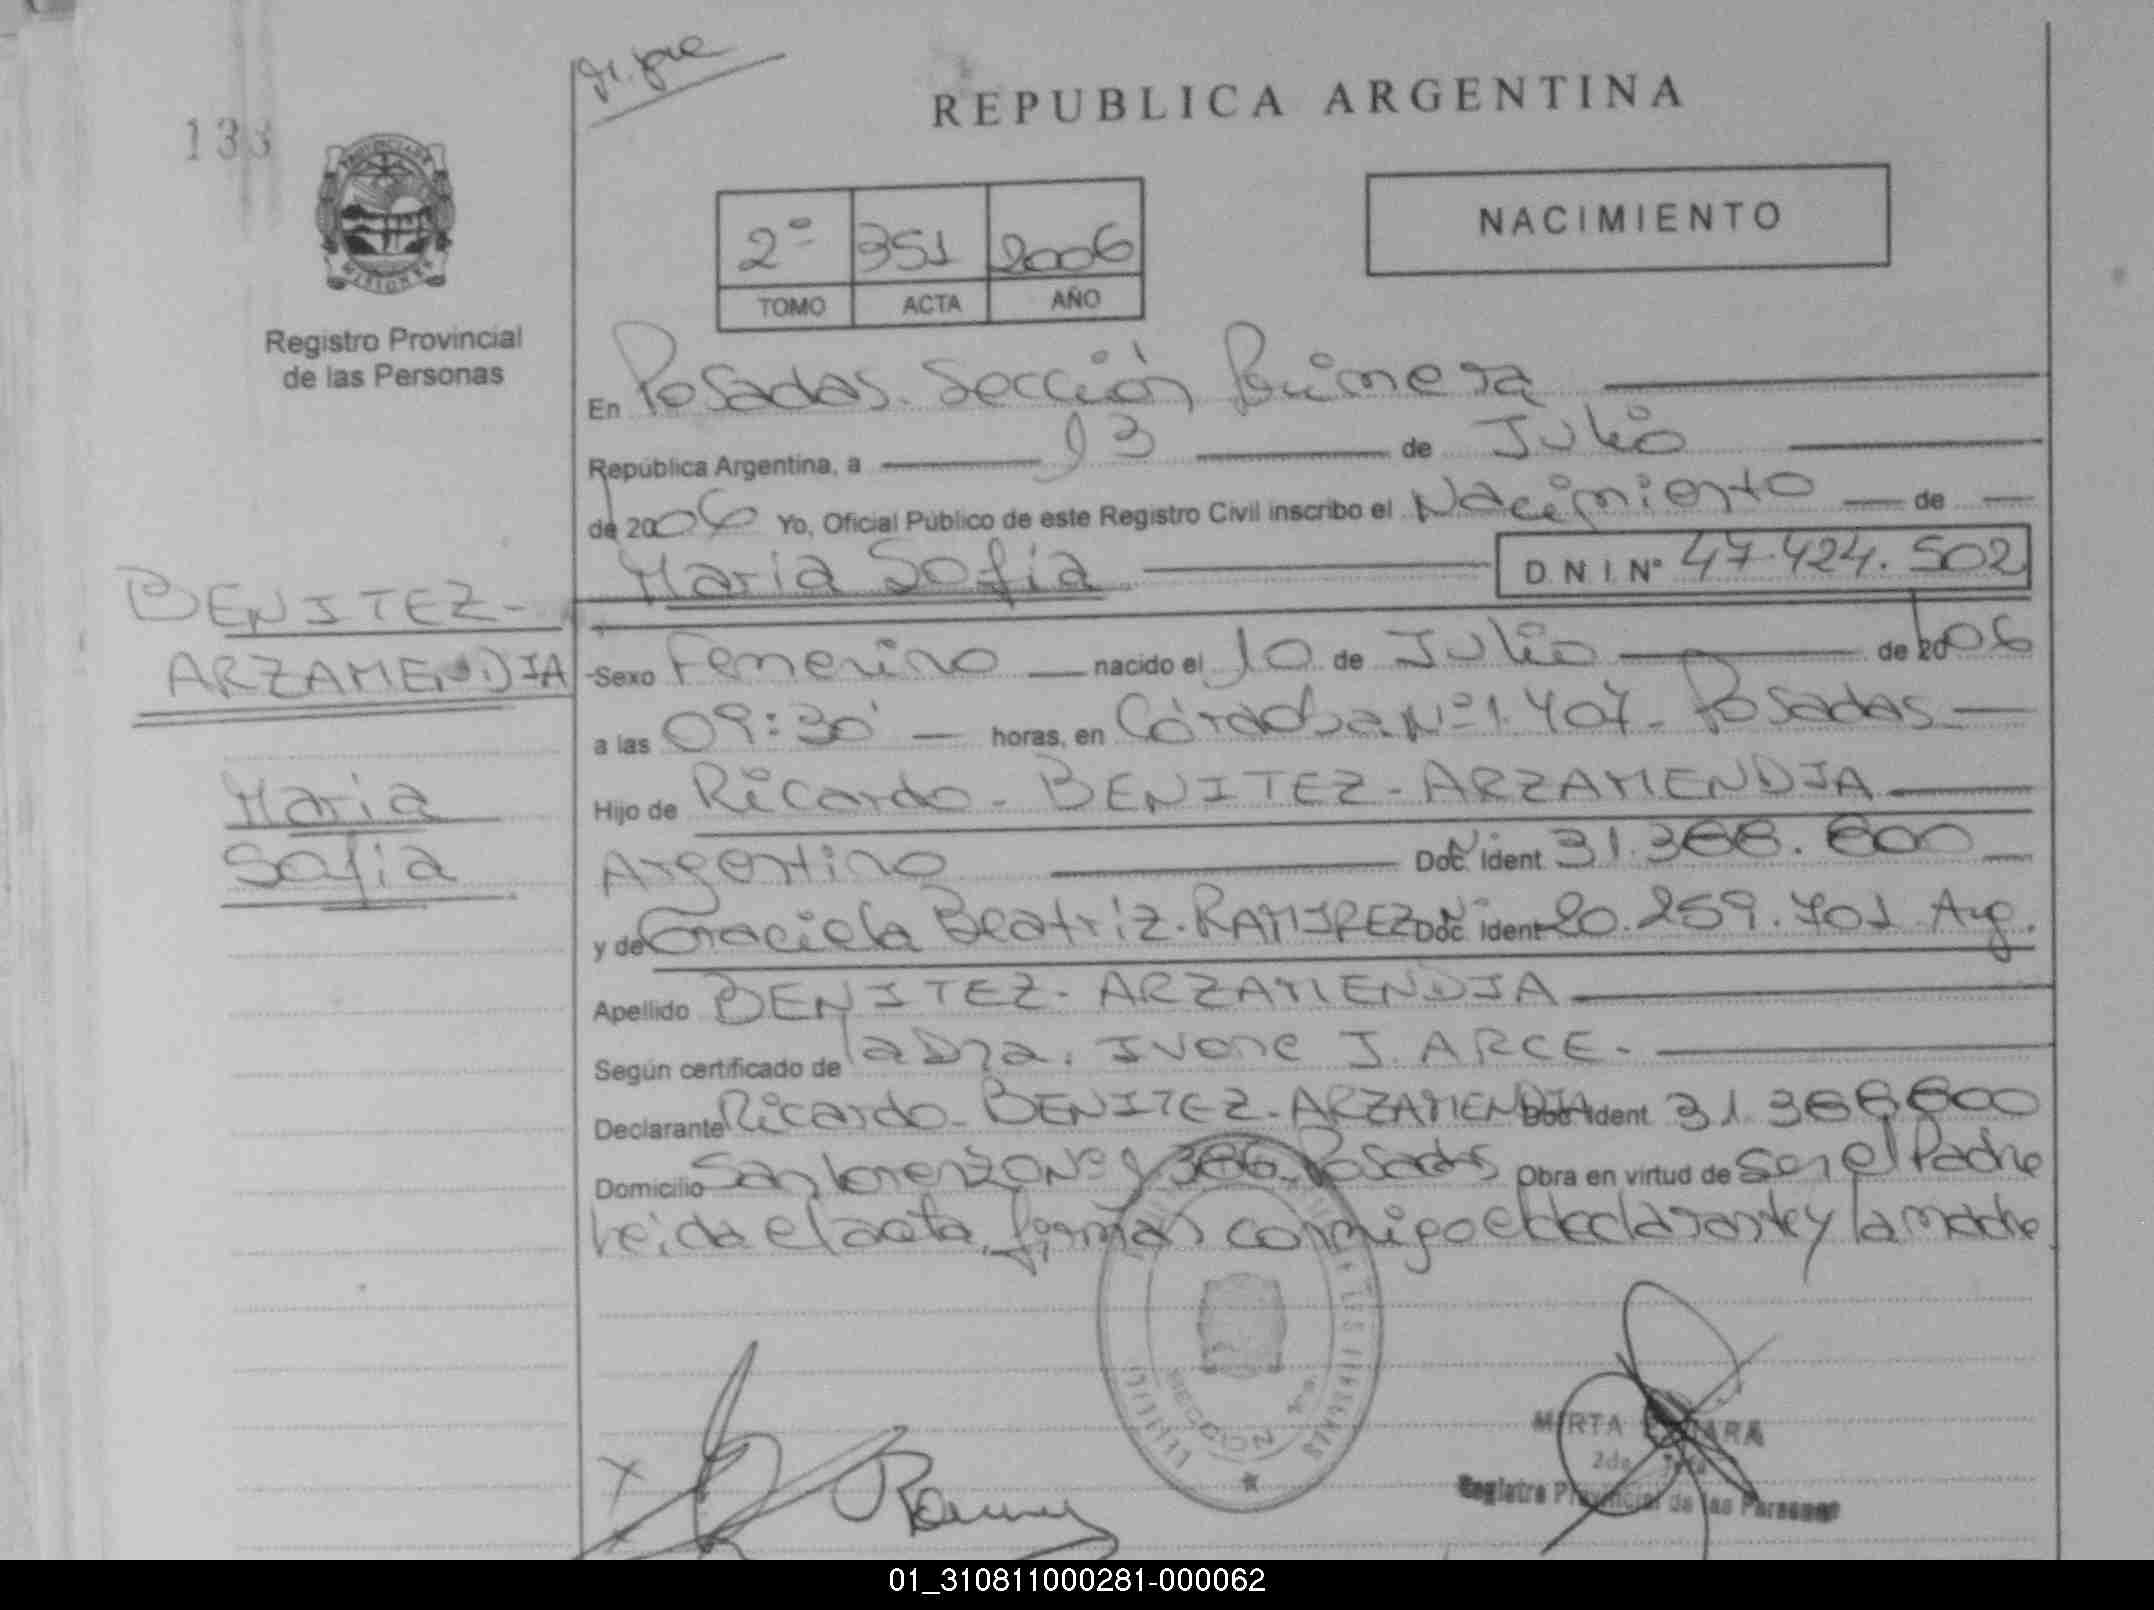 133
REPUBLICA ARGENTINA
2º 351 2006
TOMO ACTA AÑO
NACIMIENTO
Registro Provincial
de las Personas
En Posadas. Sección Primera
República Argentina, a 13 de Julio
de 2006 Yo, Oficial Público de este Registro Civil inscribo el Nacimiento de
Maria Sofia D.N.I. Nº 47.424.502
BENITEZ-
ARZAMENDIA
Maria
Sofia
Sexo Femenino nacido el 10 de Julio de 2006
a las 09:30' horas, en Córdoba Nº 1.407- Posadas
Hijo de Ricardo - BENITEZ - ARZAMENDIA
Argentino Doc. Ident. 31.388.800
y de Graciela Beatriz. RAMIREZ Doc. Ident 20.259.701 Arg.
Apellido BENITEZ - ARZAMENDIA
Según certificado de la Dra. Ivone J. ARCE.
Declarante Ricardo - BENITEZ - ARZAMENDIA Doc. Ident 31.388.800
Domicilio San Lorenzo Nº Posadas Obra en virtud de Ser el Padre
Leida el acta, firman conmigo el declarante y la madre
SECCION
MIRTA
2da. Jefa
Registro Provincial de las Personas
01_310811000281-000062